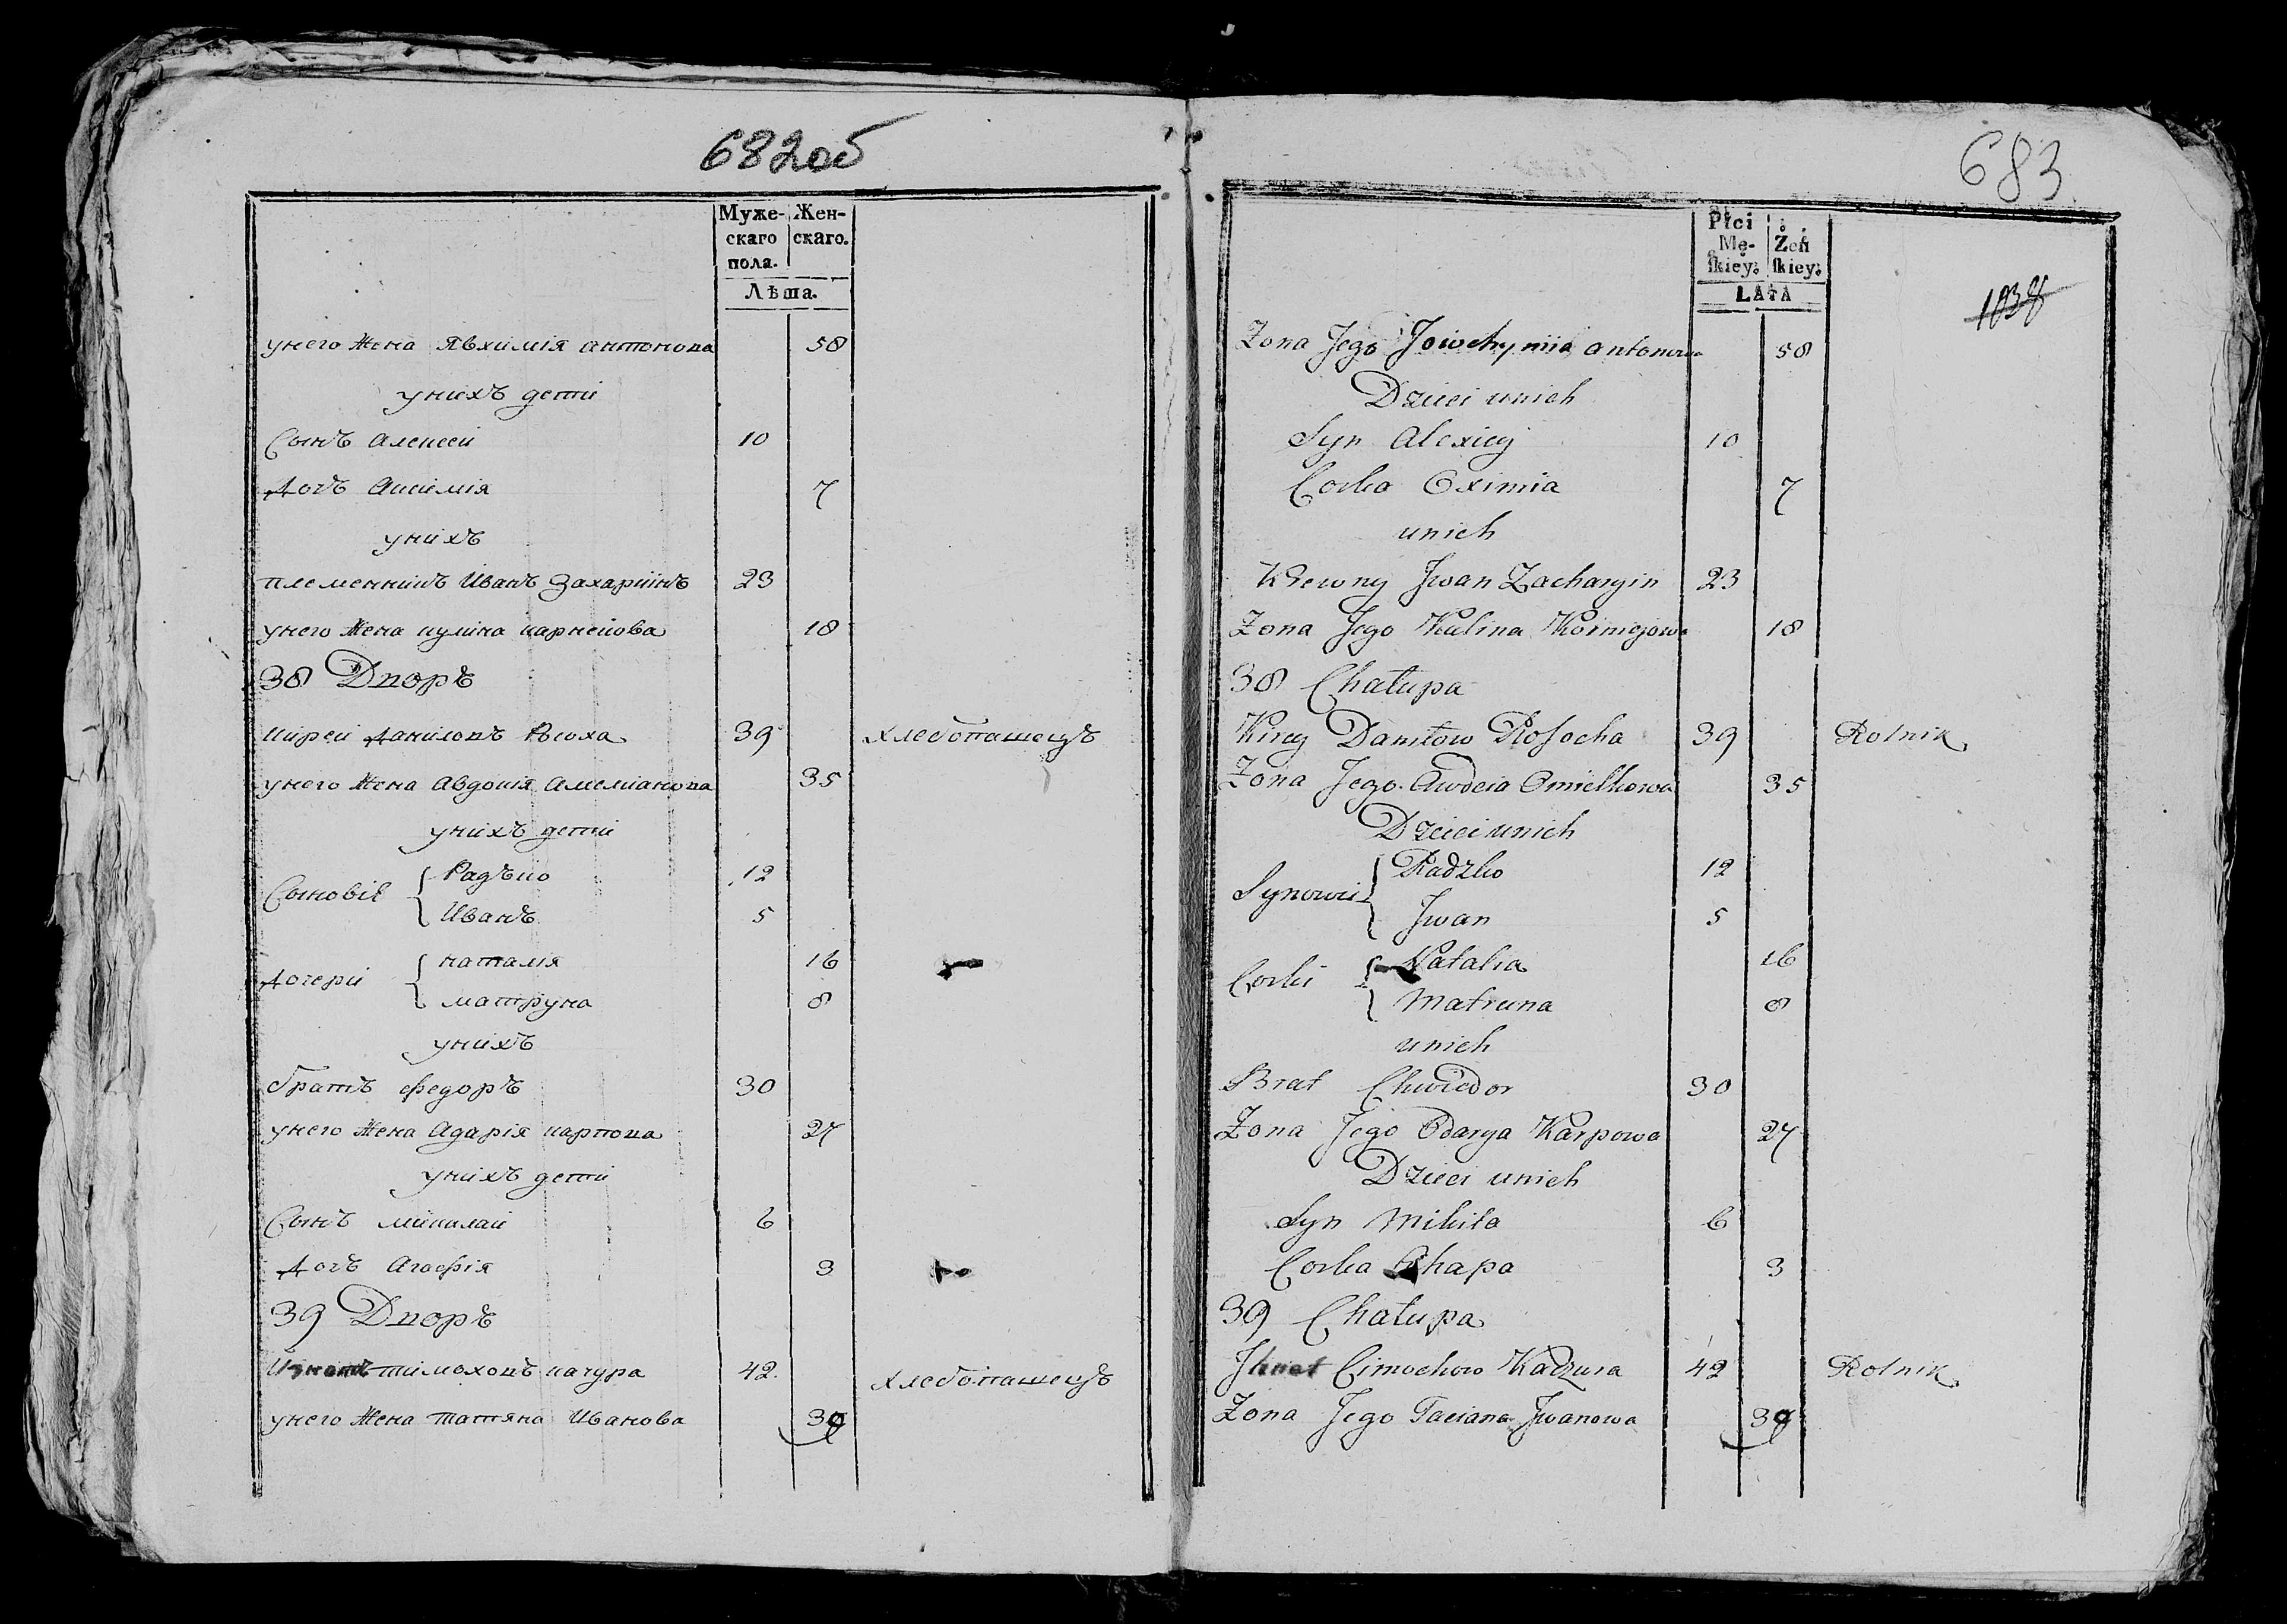 682об
Муже-
скаго
пола.
Жен-
скаго.
Лѣта.
унего жена Явхимія антонова 58
унихъ дети
Сынъ алексеи 10
дочъ аксимія 7
унихъ
племенникъ Иванъ Захариинъ 23
унего жена кулина карнеиова 18
38 Дворъ
кирей даниловъ Росоха 39 хлебопашецъ
унего жена авдокия амелианова 35
унихъ дети
Сыновіе { Радъко 12
Иванъ 5
дочери { наталія 16
матруна 8
унихъ
братъ федоръ 30
унего жена адарія карпова 27
унихъ дети
Сынъ миколаи 6
дочъ агафія 3
39 Дворъ
тимоховъ качура 42 хлебопашецъ
унего жена татяна Иванова
683
Płci
Mę-
ſkiey:
Żeń
ſkiey:
LATA
1038
Zona Jego Jowchymia antonowa 58
Dzieci unich
Syn Alexiey 10
Corka Oximia 7
unich
Krewny Jwan Zacharyin 23
Zona Jego Kulina Korniejowa 18
38 Chałupa
Kirey Daniłow Rosocha 39 Rolnik
Zona Jego Awdeia Omielkowa 35
Dzieci unich
Synowie { Radzko 12
Jwan 5
Corki { Natalia 16
Matruna 8
unich
Brat Chwiedor 30
Zona Jego Odarya Karpowa 27
Dzieci unich
Syn Mikita 6
Corka Ahapa 3
39 Chałupa
Jhnat Cimochow Kaczura 42 Rolnik
Zona Jego Taciana Jwanowa